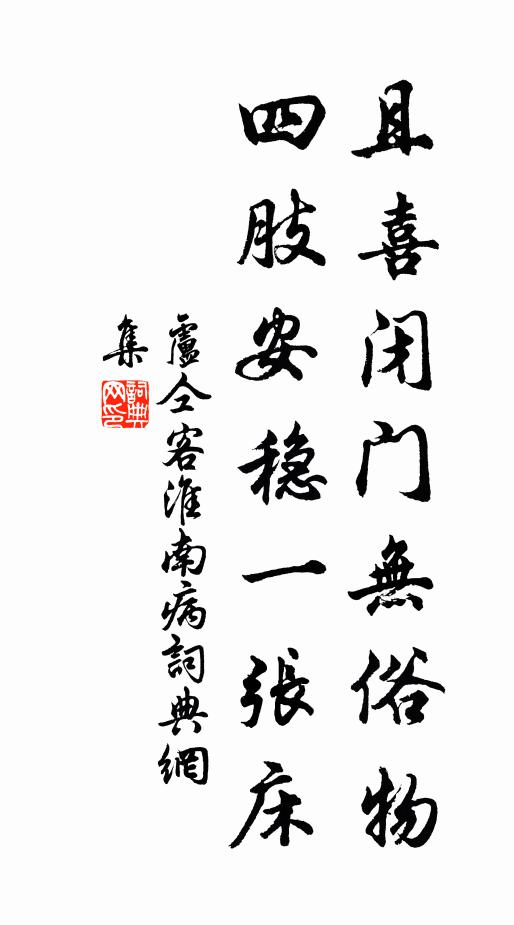 且喜闭门無俗物
四肢安穏一張床
盧仝客淮南病詞典網
集
詞典
网印